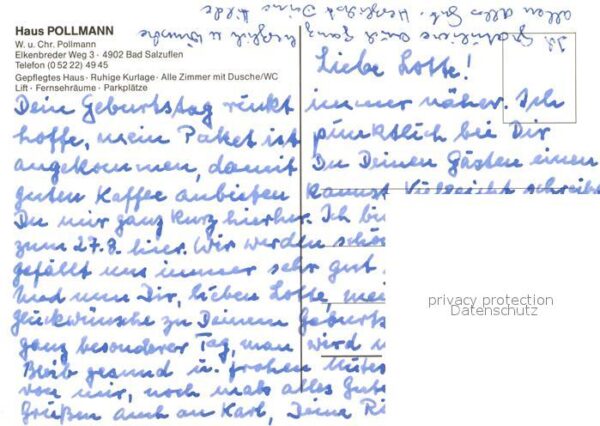 Haus POLLMANN
W. u. Chr. Pollmann
Elkenbreder Weg 3 · 4902 Bad Salzuflen
Telefon (0 52 22) 49 45
Gepflegtes Haus · Ruhige Kurlage · Alle Zimmer mit Dusche/WC
Lift · Fernsehräume · Parkplätze
Liebe Lotte!
Dein Geburtstag rückt immer näher. Ich
hoffe, mein Paket ist pünktlich bei Dir
angekommen, damit Du Deinen Gästen einen
guten Kaffee anbieten kannst. Vielleicht schreibt
Du mir ganz kurz hierher. Ich bin
zum 27.8. hier. Wir werden
gefällt uns immer sehr gut.
Und nun Dir, lieben Lotte,
Glückwünsche zu Deinem Geburts
ganz besonderer Tag, man wird
Bleib gesund u. frohen Mutes
von mir, noch mals alles Gute
Grüßen auch an Karl, Deine
Ich gratuliere auch ganz herzlich u. wünsche
allem alles Gute. Herzlichst Deine
privacy protection
Datenschutz